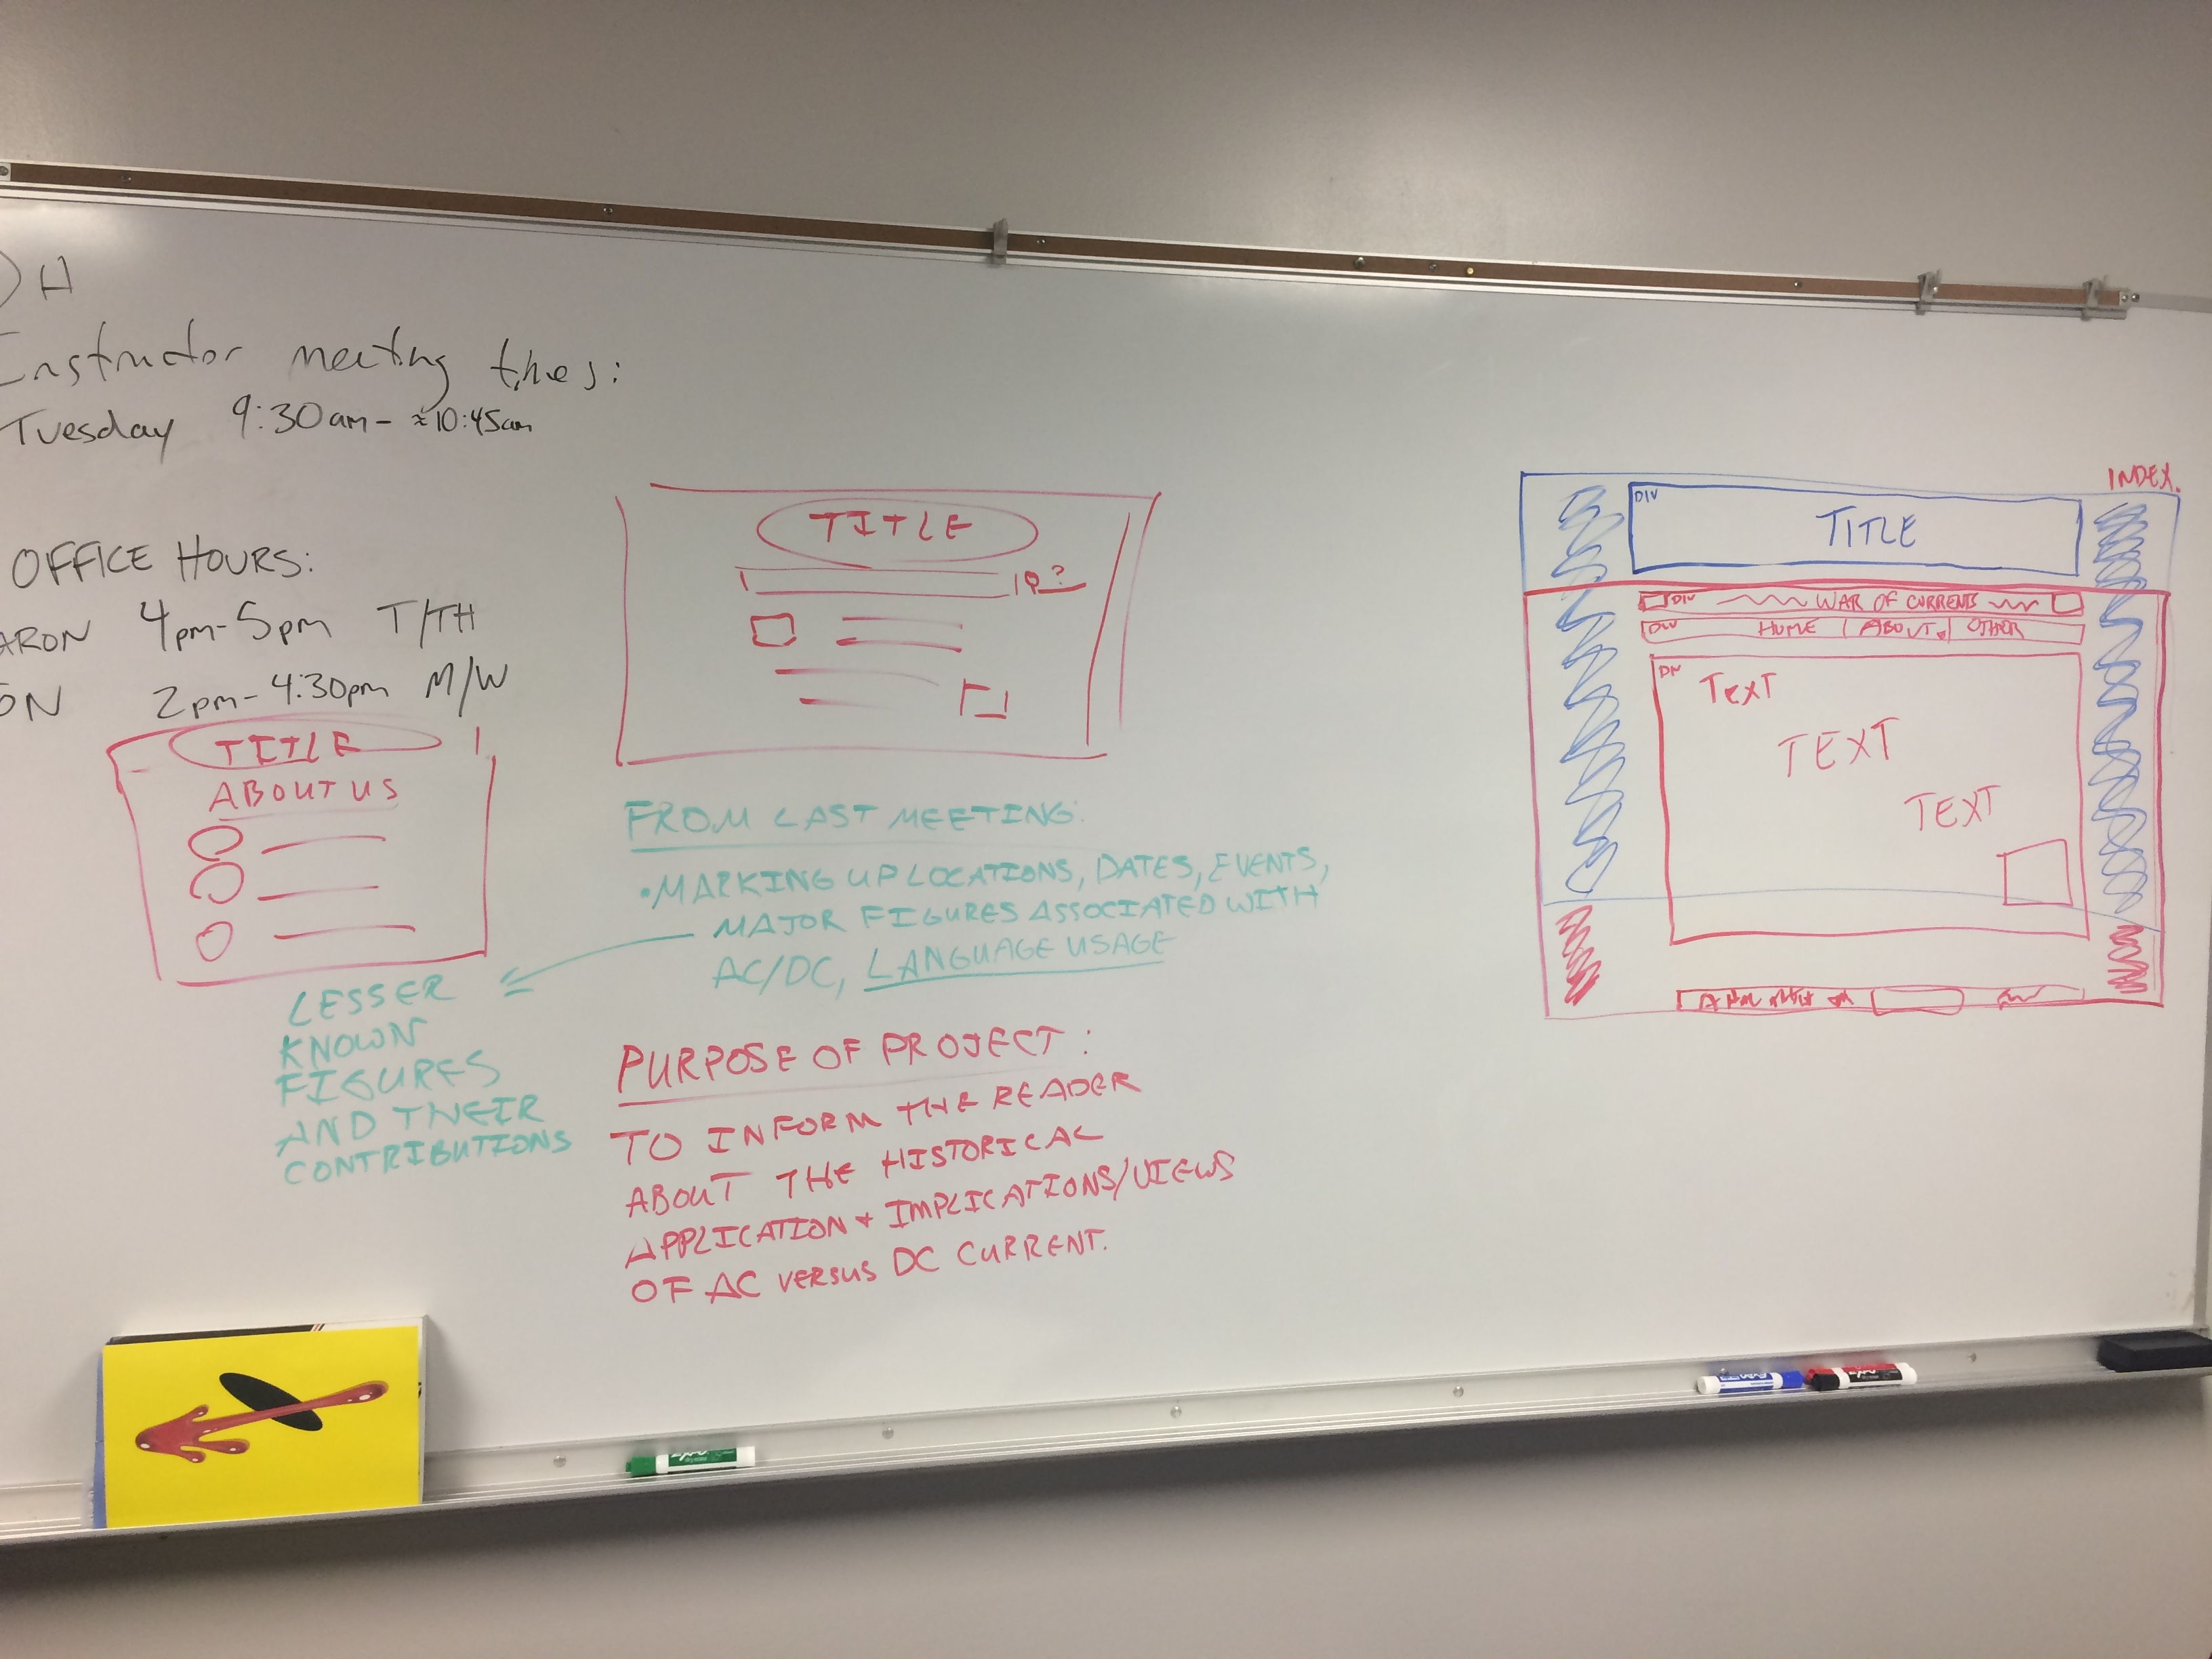 DH
Instructor meeting times:
Tuesday 9:30am - ≈10:45am
OFFICE HOURS:
ARON 4pm-5pm T/TH
ON 2pm-4:30pm M/W
TITLE
ABOUT US
TITLE
FROM LAST MEETING:
•MARKING UP LOCATIONS, DATES, EVENTS,
MAJOR FIGURES ASSOCIATED WITH
AC/DC, LANGUAGE USAGE
LESSER
KNOWN
FIGURES
AND THEIR
CONTRIBUTIONS
PURPOSE OF PROJECT:
TO INFORM THE READER
ABOUT THE HISTORICAL
APPLICATION + IMPLICATIONS/VIEWS
OF AC VERSUS DC CURRENT.
INDEX.
DIV
TITLE
DIV WAR OF CURRENTS
DIV HOME | ABOUT | OTHER
DIV
TEXT
TEXT
TEXT